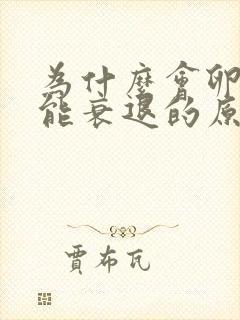 為什麼會卵
能衰退的原
賈布瓦